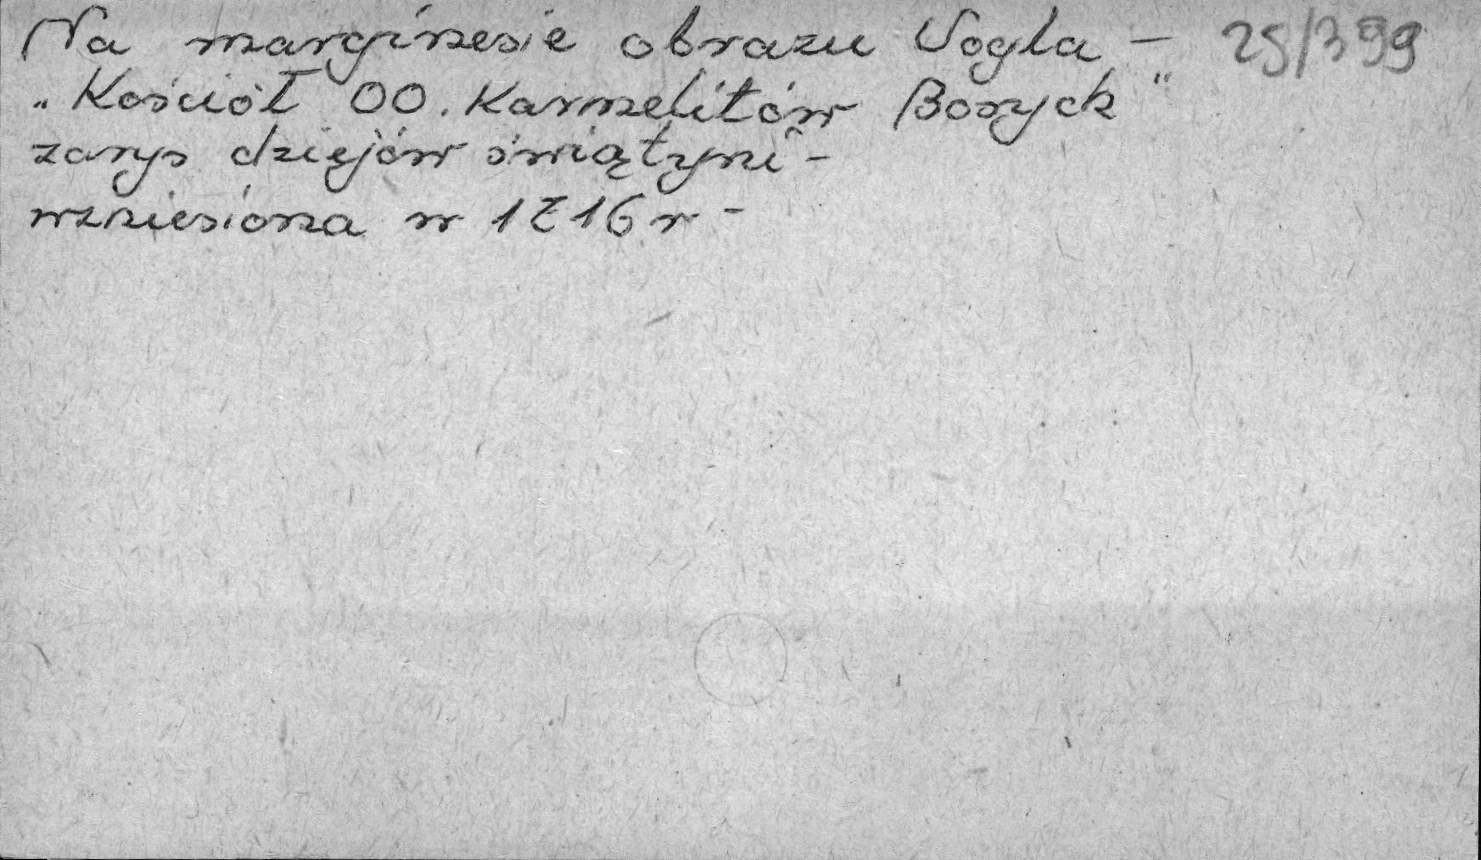 Na marginesie obrazu Vogla – 25/399
„Kościół OO. Karmelitów Bosych"
zarys dziejów świątyni –
wzniesiona w 1716 r –